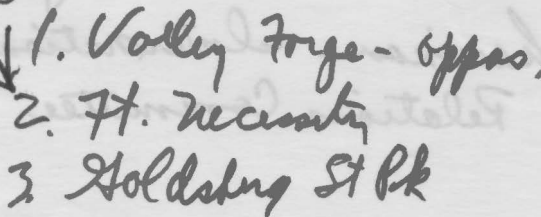 1. Valley Forge - oppos.
2. Ft. Necessity
3. Goldsburg St Pk